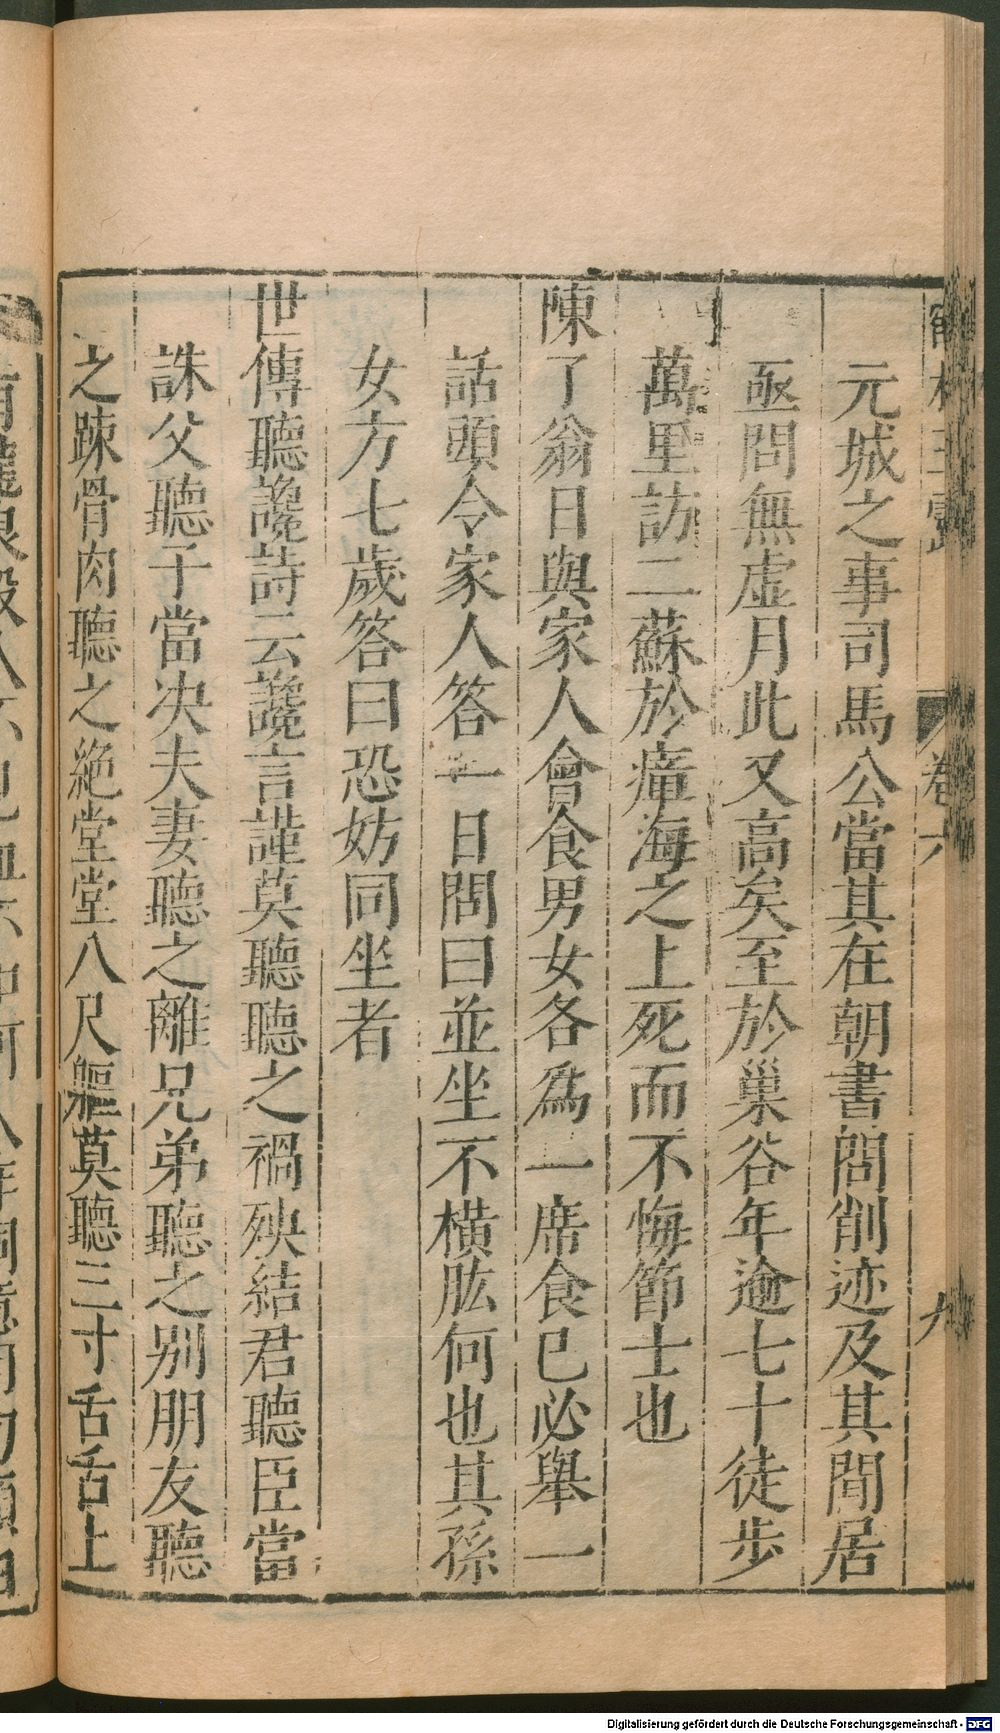 卷六
九
元城之事司馬公當其在朝書問削迹及其閒居
亟問無虚月此又高矣至於巢谷年逾七十徒步
萬里訪二蘇於瘴海之上死而不悔節士也
陳了翁日與家人會食男女各爲一席食已必舉一
話頭令家人答一日問曰並坐不橫肱何也其孫
女方七歲答曰恐妨同坐者
世傳聽讒詩云讒言謹莫聽聽之禍殃結君聽臣當
誅父聽子當决夫妻聽之離兄弟聽之别朋友聽
之踈骨肉聽之絶堂堂八尺軀莫聽三寸舌舌上
Digitalisierung gefördert durch die Deutsche Forschungsgemeinschaft - DFG